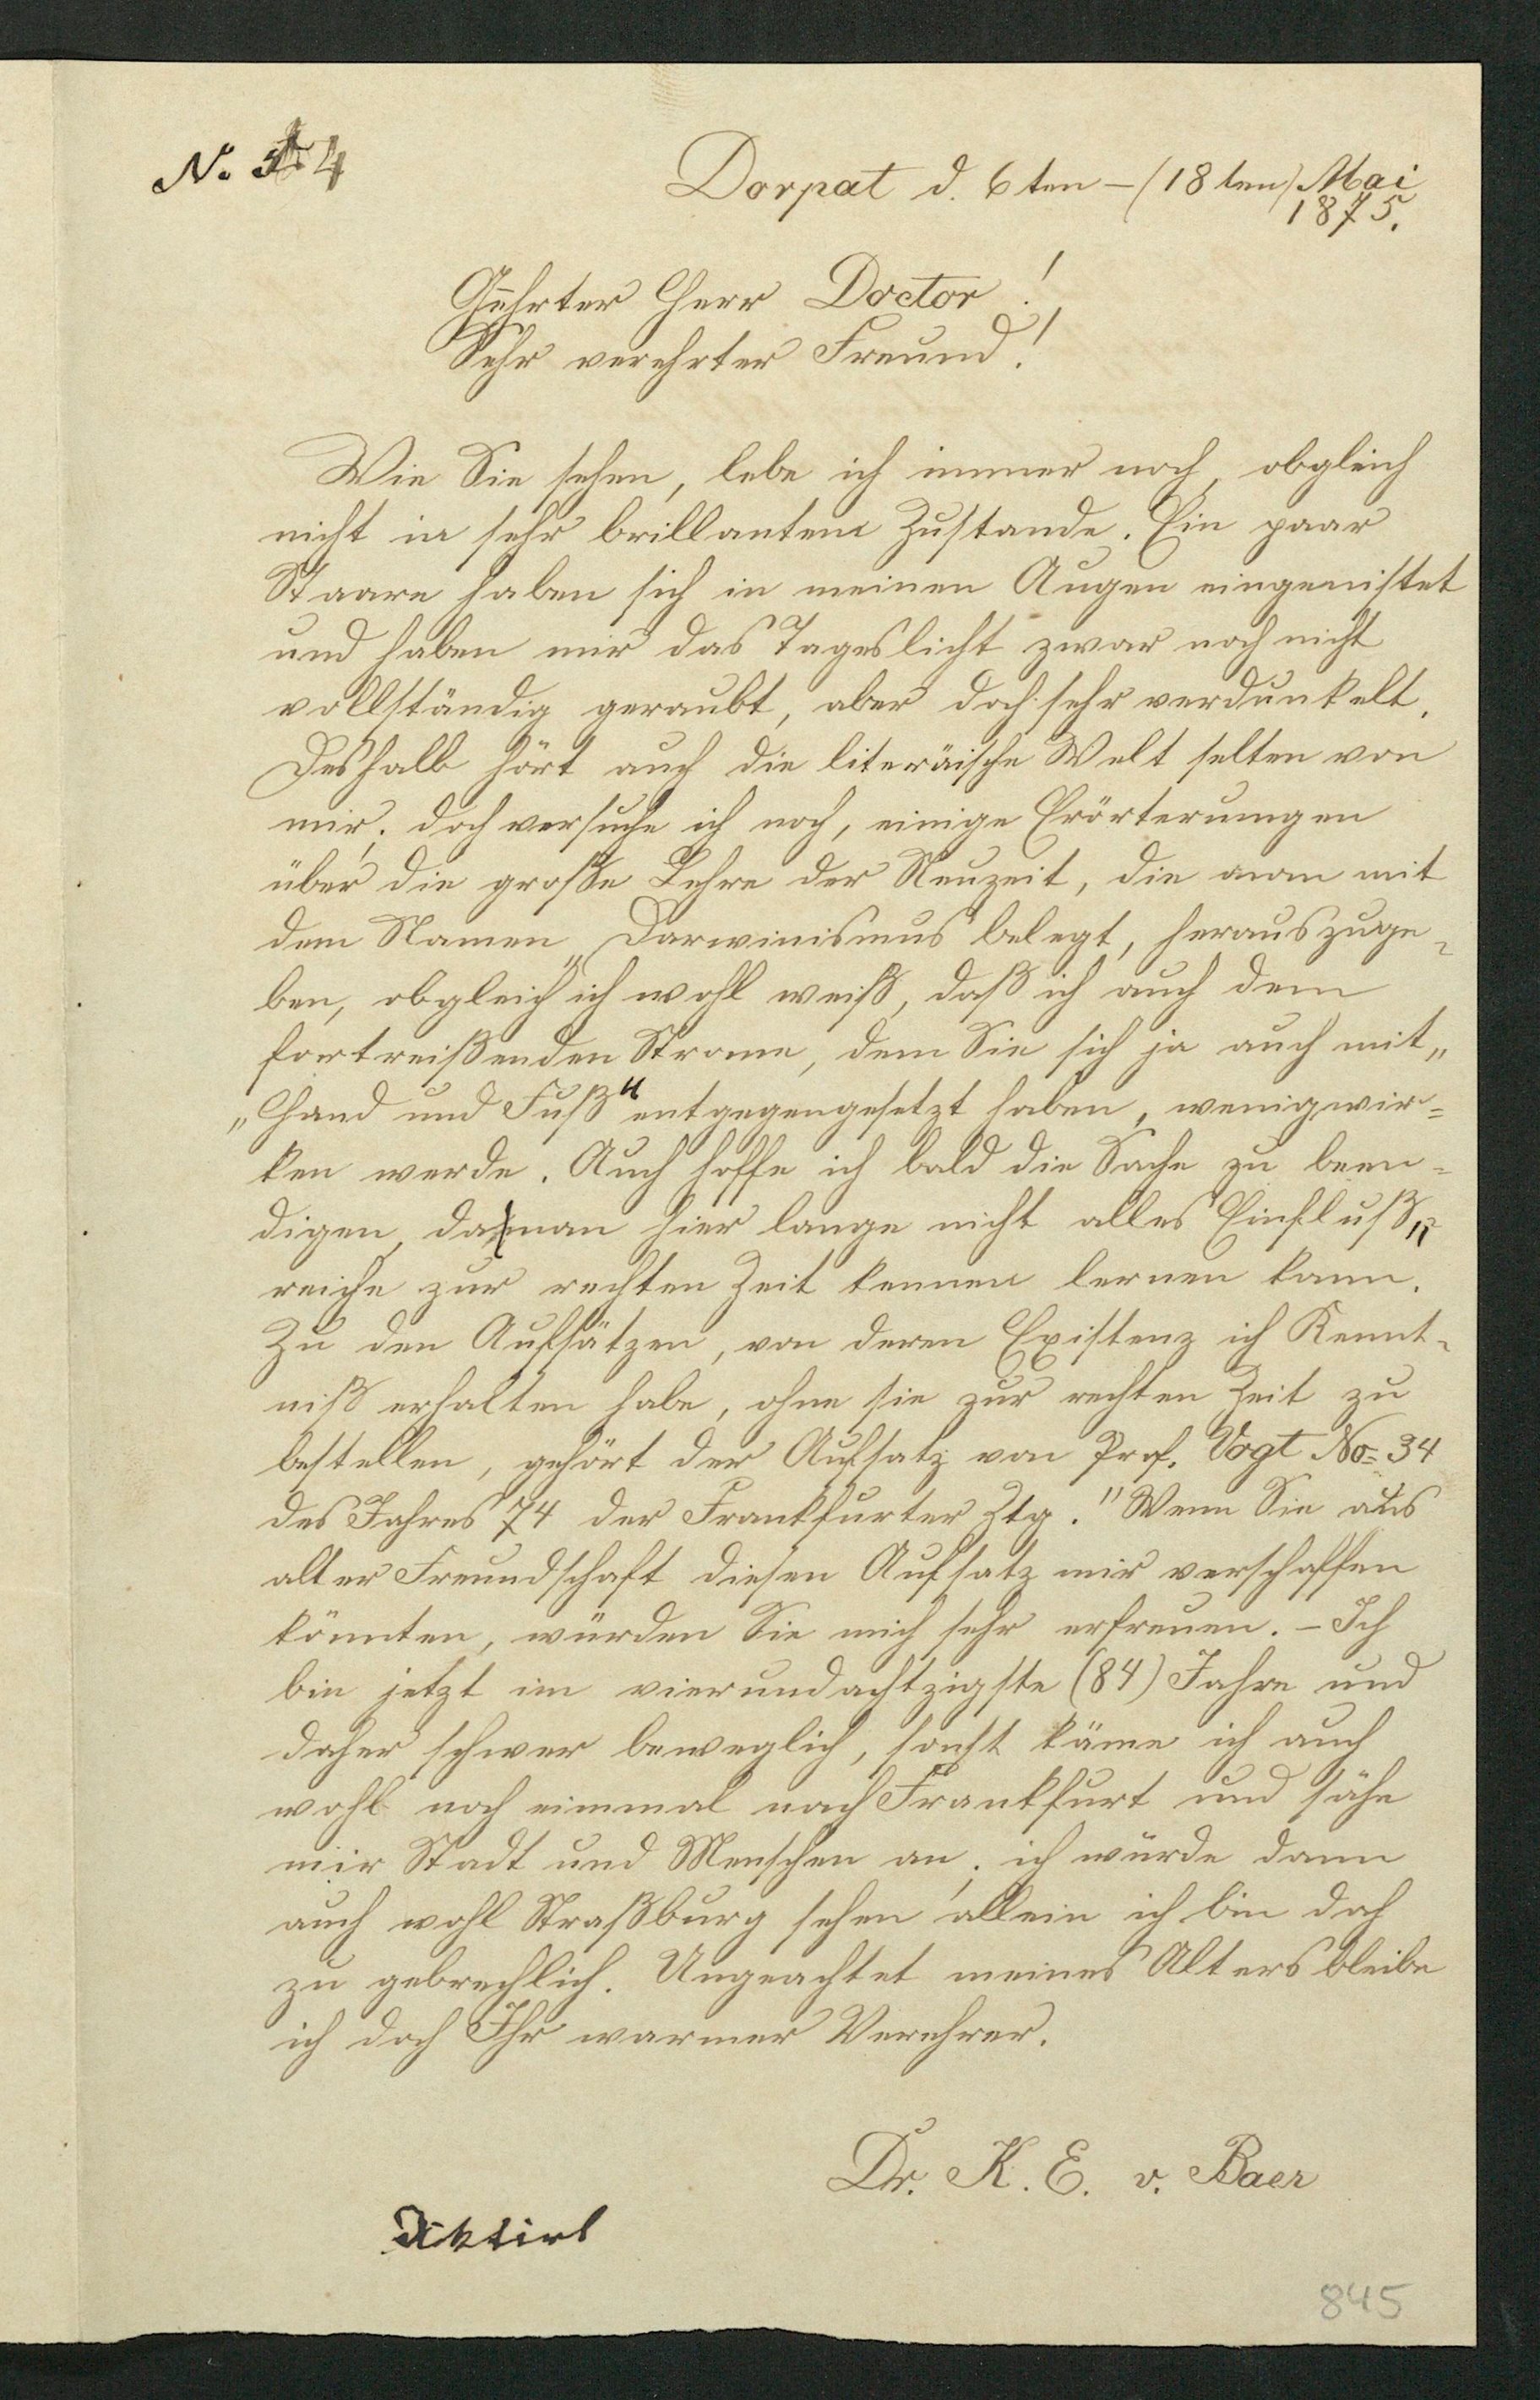 N. 4
Dorpat d. 6ten – (18ten) Mai
1875.
Geehrter Herr Doctor!
Sehr verehrter Freund!
Wie Sie sehen, lebe ich immer noch, obgleich
nicht in sehr brillantem Zustande. Ein paar
Staare haben sich in meinen Augen eingenistet
und haben mir das Tageslicht zwar noch nicht
vollständig geraubt, aber doch sehr verdunkelt.
Deshalb hört auch die literäische Welt selten von
mir; doch versuche ich noch, einige Erörterungen
über die große Lehre der Neuzeit, die man mit
dem Namen „Darwinismus" belegt, herauszuge-
ben, obgleich ich wohl weiß, daß ich auch dem
fortreißenden Strome, dem Sie sich ja auch mit„
„Hand und Fuß" entgegengesetzt haben, wenig wir=
ken werde. Auch hoffe ich bald die Sache zu been=
digen, da man hier lange nicht alles Einfluß„
reiche zur rechten Zeit kennen lernen kann.
Zu den Aufsätzen, von deren Existenz ich Kennt-
niß erhalten habe, ohne sie zur rechten Zeit zu
bestellen, gehört der Aufsatz von Prof. Vogt No= 34
des Jahres 74 der Frankfurter Ztg." Wenn Sie aus
alter Freundschaft diesen Aufsatz mir verschaffen
könnten, würden Sie mich sehr erfreuen. – Ich
bin jetzt im vierundachtzigste (84) Jahre und
daher schwer beweglich, sonst käme ich auch
wohl noch einmal nach Frankfurt und sähe
mir Stadt und Menschen an; ich würde dann
auch wohl Straßburg sehen allein ich bin doch
zu gebrechlich. Ungeachtet meines Alters bleibe
ich doch Ihr warmer Verehrer.
Dr. K. E. v. Baer
Diktirt
845